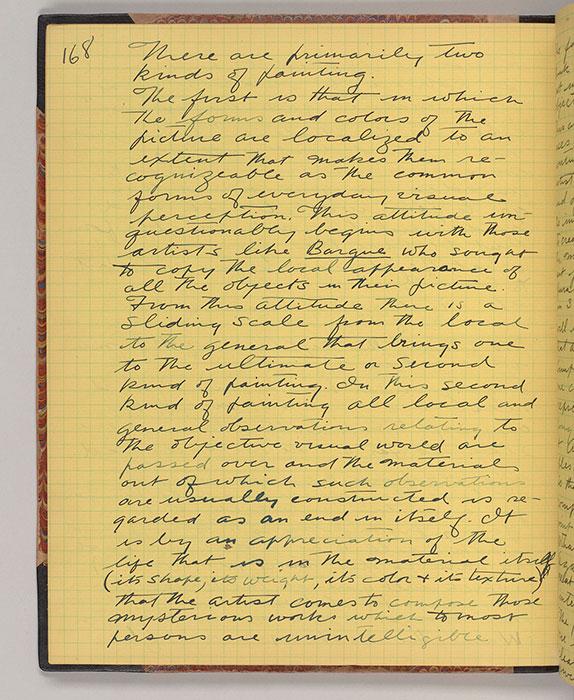 168
There are primarily two
kinds of painting.
The first is that in which
the forms and colors of the
picture are localized to an
extent that makes them re-
cognizeable as the common
forms of everyday visual
perception. This attitude un-
questionably begins with those
artists like Bargue who sought
to copy the local appearance of
all the objects in their picture.
From this attitude there is a
sliding scale from the local
to the general that brings one
to the ultimate or second
kind of painting. In this second
kind of painting all local and
general observations relating to
the objective visual world are
passed over and the materials
out of which such observations
are usually constructed is re-
garded as an end in itself. It
is by an appreciation of the
life that is in the material itself
(its shape, its weight, its color + its texture)
that the artist comes to compose those
mysterious works which to most
persons are unintelligible